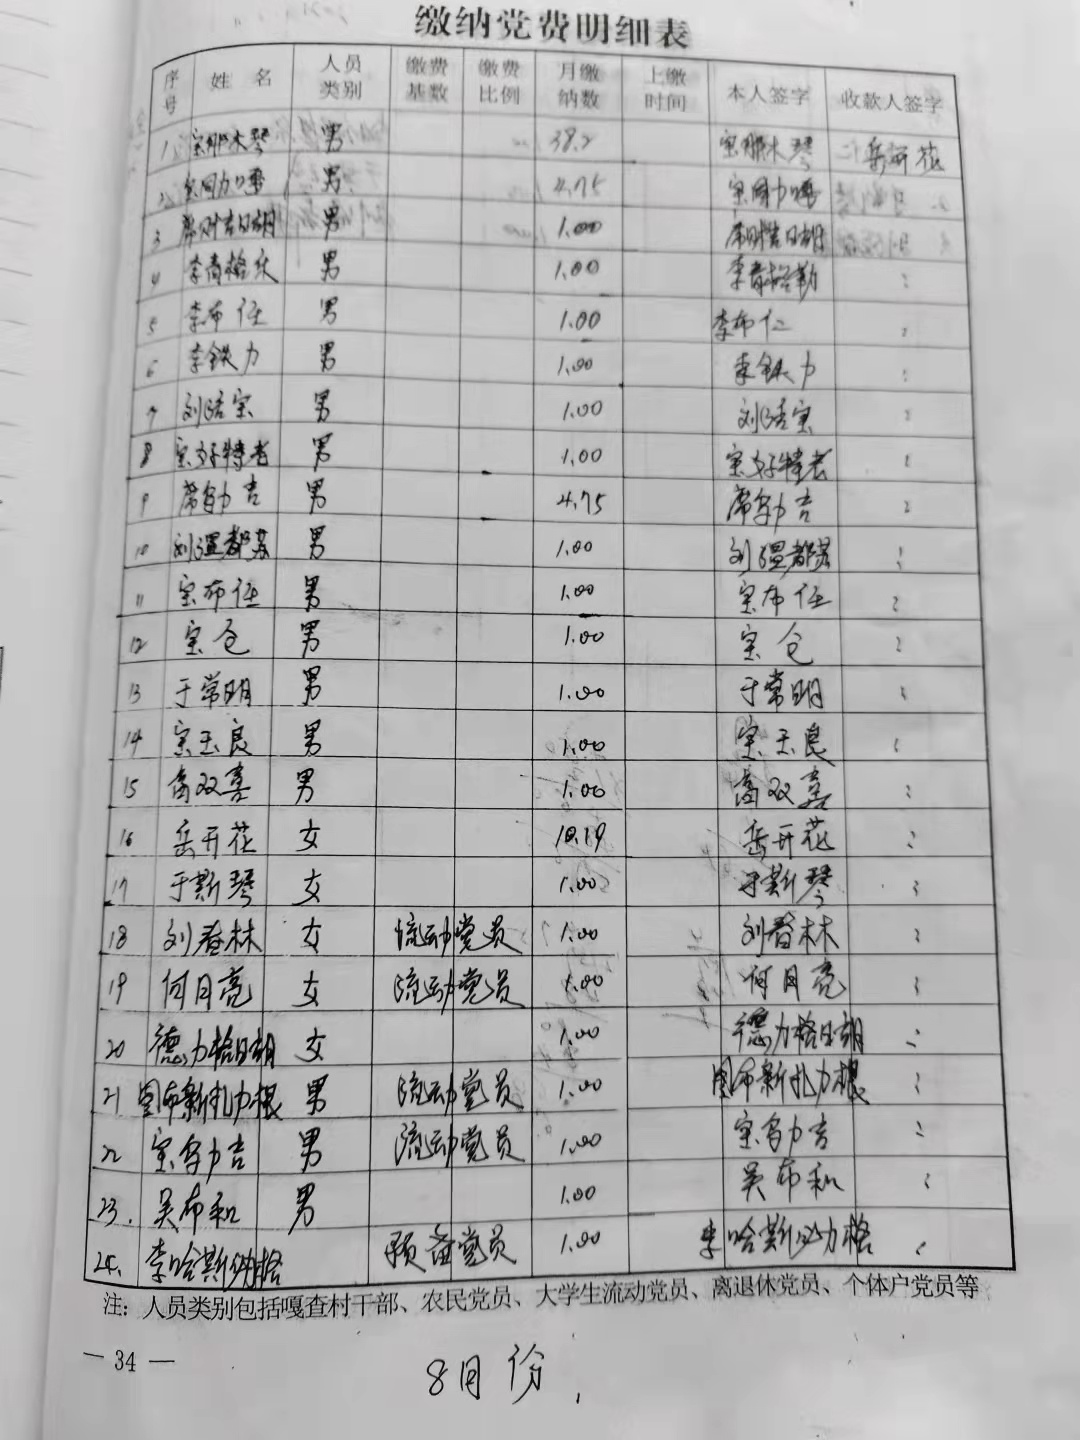 缴纳党费明细表
序号 姓名 人员类别 缴费基数 缴费比例 月缴纳数 上缴时间 本人签字 收款人签字
1 宝那木琴 男 38.2 宝那木琴 岳开花
2 男 4.75
3 席财吉日胡 男 1.00 席财吉日胡
4 李青格乐 男 1.00 李青格勒
5 李布任 男 1.00 李布仁
6 李铁力 男 1.00 李铁力
7 男 1.00
8 宝好特老 男 1.00 宝好特老
9 男 4.75
10 刘温都苏 男 1.00 刘温都苏
11 宝布任 男 1.00 宝布任
12 宝仓 男 1.00 宝仓
13 于常明 男 1.00 于常明
14 宝玉良 男 1.00 宝玉良
15 高双喜 男 1.00 高双喜
16 岳开花 女 10.19 岳开花
17 于斯琴 女 1.00 于斯琴
18 刘春林 女 流动党员 1.00 刘春林
19 何月亮 女 流动党员 1.00 何月亮
20 德力格日胡 女 1.00 德力格日胡
21 图布新扎力根 男 流动党员 1.00 图布新扎力根
22 男 流动党员 1.00
23. 吴布和 男 1.00 吴布和
24. 李哈斯必力格 预备党员 1.00 李哈斯必力格
注：人员类别包括嘎查村干部、农民党员、大学生流动党员、离退休党员、个体户党员等
— 34 —
8月份